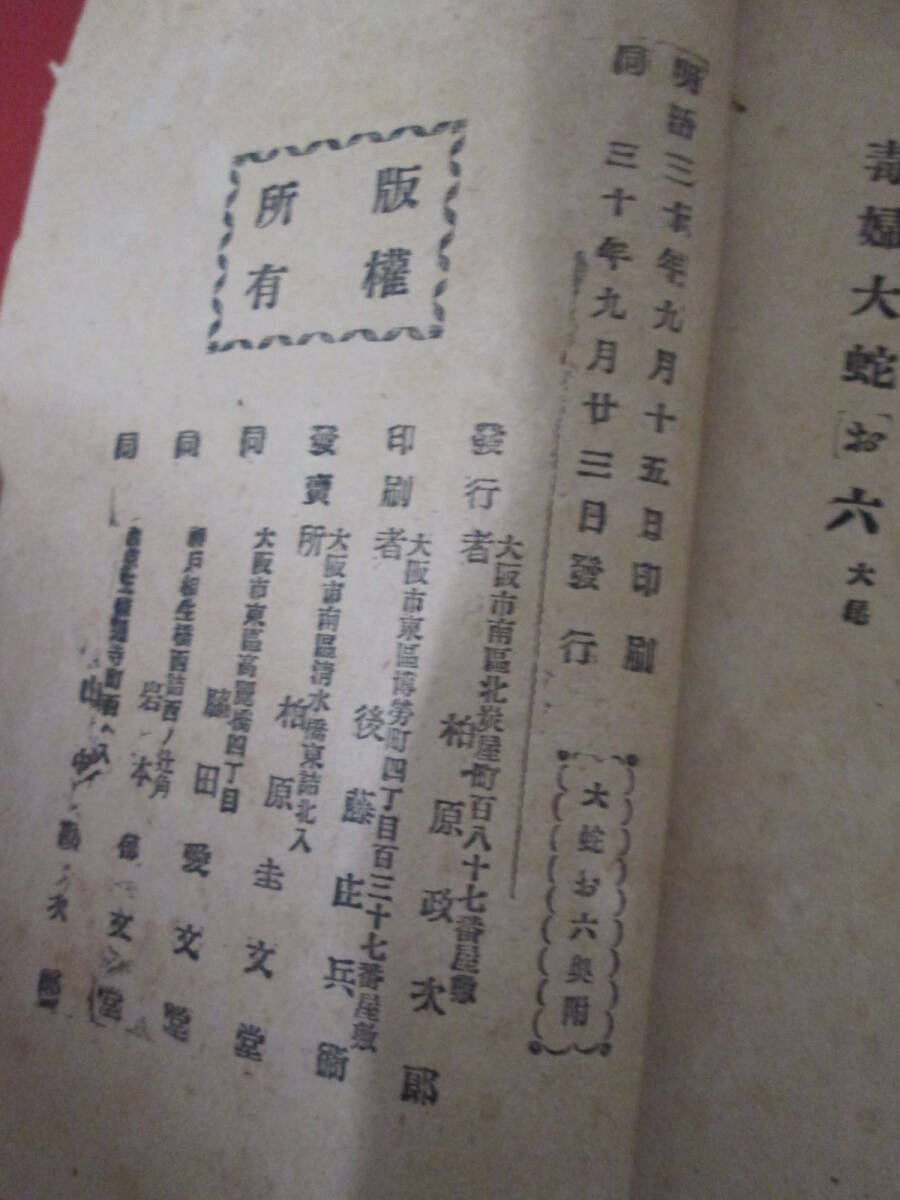 毒婦大蛇お六 大尾
明治三十年九月十五日印刷
同 三十年九月廿三日發行
大蛇お六奥附
版權所有
發行者
大阪市南區北炭屋町百八十七番屋敷
柏原政次郎
印刷者
大阪市東區博勞町四丁目百三十七番屋敷
後藤庄兵衞
發賣所
大阪市南區清水橋東詰北入
柏原圭文堂
同
大阪市東區高麗橋四丁目
脇田愛文堂
同
神戸相生橋西詰西ノ辻角
岩本 文堂
同
寺町西へ入
山中勘次郎